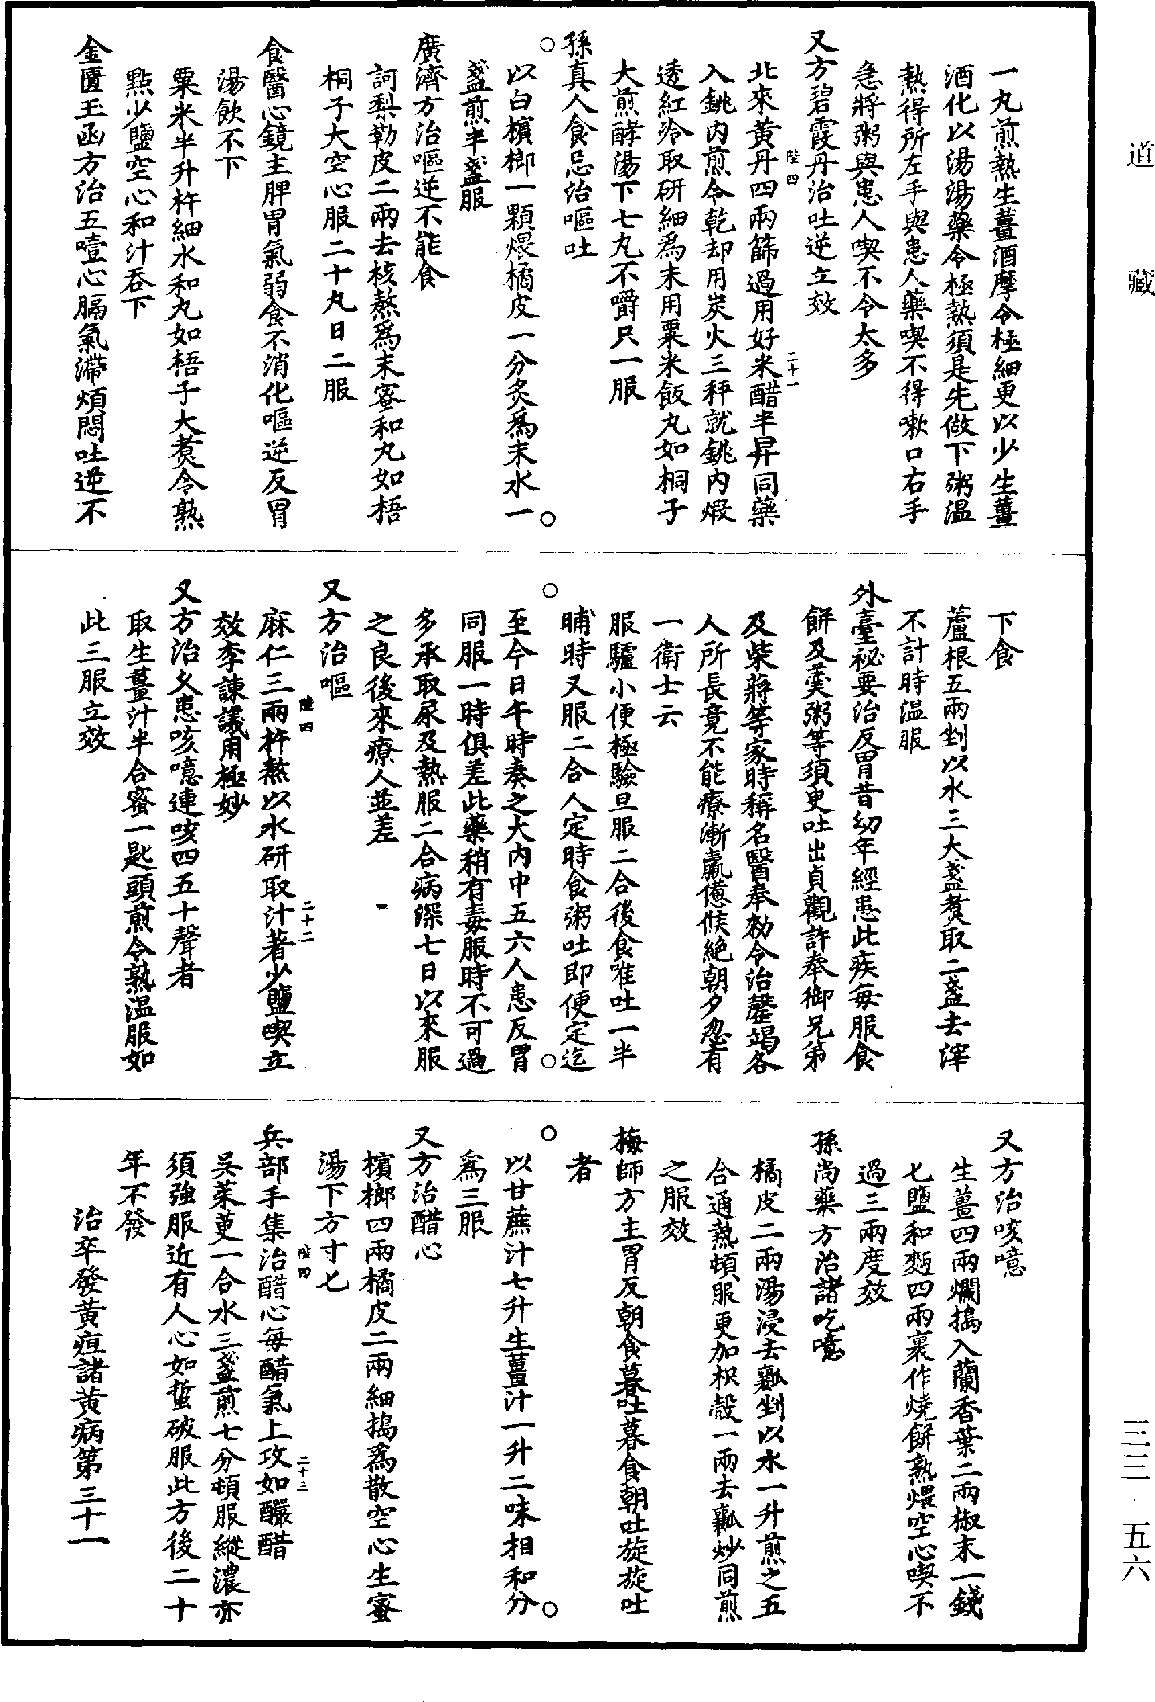 道藏
一丸煎熱生薑酒摩令極細更以少生薑
酒化以湯湯藥令極熱須是先做下粥温
熱得所左手與患人藥喫不得嗽口右手
急將粥與患人喫不令太多
又方碧霞丹治吐逆立效
陸四
二十一
北來黃丹四兩篩過用好米醋半昇同藥
入銚內煎令乾却用炭火三秤就銚內煆
透紅冷取研細爲末用粟米飯丸如桐子
大煎酵湯下七丸不嚼只一服
孫真人食忌治嘔吐
以白檳榔一顆煨橘皮一分炙爲末水一
盞煎半盞服
廣濟方治嘔逆不能食
訶梨勒皮二兩去核熬爲末蜜和丸如梧
桐子大空心服二十丸日二服
食醫心鏡主脾胃氣弱食不消化嘔逆反胃
湯飲不下
粟米半升杵細水和丸如梧子大煑令熟
點少鹽空心和汁吞下
金匱玉函方治五噎心膈氣滯煩悶吐逆不
下食
蘆根五兩剉以水三大盞煑取二盞去滓
不計時温服
外臺祕要治反胃昔幼年經患此疾每服食
餅及羹粥等須臾吐出貞觀許奉御兄弟
及柴蔣等家時稱名醫奉勑令治罄竭各
人所長竟不能療漸羸憊候絕朝夕忽有
一衛士云
服驢小便極驗旦服二合後食唯吐一半
晡時又服二合人定時食粥吐即便定迄
至今日午時奏之大內中五六人患反胃
同服一時俱差此藥稍有毒服時不可過
多承取尿及熱服二合病深七日以來服
之良後來療人並差
又方治嘔
陸四
二十二
麻仁三兩杵熬以水研取汁著少鹽喫立
效李諫議用極妙
又方治久患咳噫連咳四五十聲者
取生薑汁半合蜜一匙頭煎令熟温服如
此三服立效
又方治咳噫
生薑四兩爛搗入蘭香葉二兩椒末一錢
七鹽和麪四兩裹作燒餅熟煨空心喫不
過三兩度效
孫尚藥方治諸吃噫
橘皮二兩湯浸去瓤剉以水一升煎之五
合通熱頓服更加枳殼一兩去瓤炒同煎
之服效
梅師方主胃反朝食暮吐暮食朝吐旋旋吐
者
以甘蔗汁七升生薑汁一升二味相和分
爲三服
又方治醋心
檳榔四兩橘皮二兩細搗爲散空心生蜜
湯下方寸七
陸四
二十三
兵部手集治醋心每醋氣上攻如釅醋
吳茱萸一合水三盞煎七分頓服縱濃亦
須強服近有人心如蜇破服此方後二十
年不發
治卒發黃疸諸黃病第三十一
三三·五六